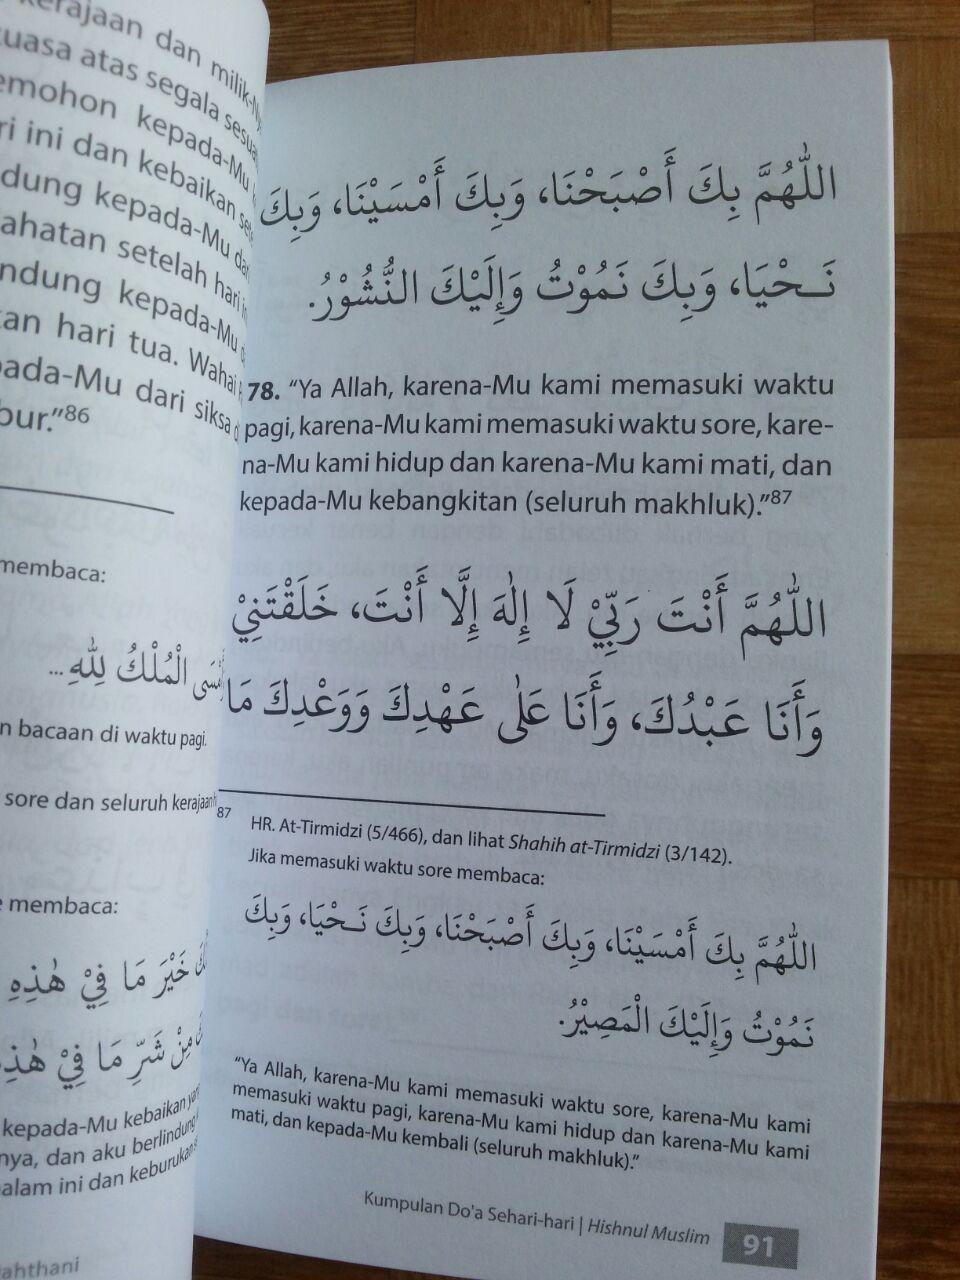 kerajaan dan milik-Ny
uasa atas segala sesua
emohon kepada-Mu
ri ini dan kebaikan sete
dung kepada-Mu dar
ahatan setelah hari in
ndung kepada-Mu d
an hari tua. Wahai
pada-Mu dari siksa d
bur."86
membaca:
الْمُلْكُ لِلّٰهِ ...
n bacaan di waktu pagi.
sore dan seluruh kerajaanh
membaca:
خَيْرَ مَا فِيْ هٰذِهِ
مِنْ شَرِّ مَا فِيْ هٰذِ
kepada-Mu kebaikan yan
nya, dan aku berlindung
alam ini dan keburukan
ahthani
اللّٰهُمَّ بِكَ أَصْبَحْنَا، وَبِكَ أَمْسَيْنَا، وَبِكَ
نَـحْيَا، وَبِكَ نَمُوْتُ وَإِلَيْكَ النُّشُوْرُ.
78. "Ya Allah, karena-Mu kami memasuki waktu
pagi, karena-Mu kami memasuki waktu sore, kare-
na-Mu kami hidup dan karena-Mu kami mati, dan
kepada-Mu kebangkitan (seluruh makhluk)."87
اللّٰهُمَّ أَنْتَ رَبِّيْ لَا إِلٰهَ إِلَّا أَنْتَ، خَلَقْتَنِيْ
وَأَنَا عَبْدُكَ، وَأَنَا عَلٰى عَهْدِكَ وَوَعْدِكَ مَا
87 HR. At-Tirmidzi (5/466), dan lihat Shahih at-Tirmidzi (3/142).
Jika memasuki waktu sore membaca:
اللّٰهُمَّ بِكَ أَمْسَيْنَا، وَبِكَ أَصْبَحْنَا، وَبِكَ نَـحْيَا، وَبِكَ
نَمُوْتُ وَإِلَيْكَ الْمَصِيْرُ.
"Ya Allah, karena-Mu kami memasuki waktu sore, karena-Mu kami
memasuki waktu pagi, karena-Mu kami hidup dan karena-Mu kami
mati, dan kepada-Mu kembali (seluruh makhluk)."
Kumpulan Do'a Sehari-hari | Hishnul Muslim 91